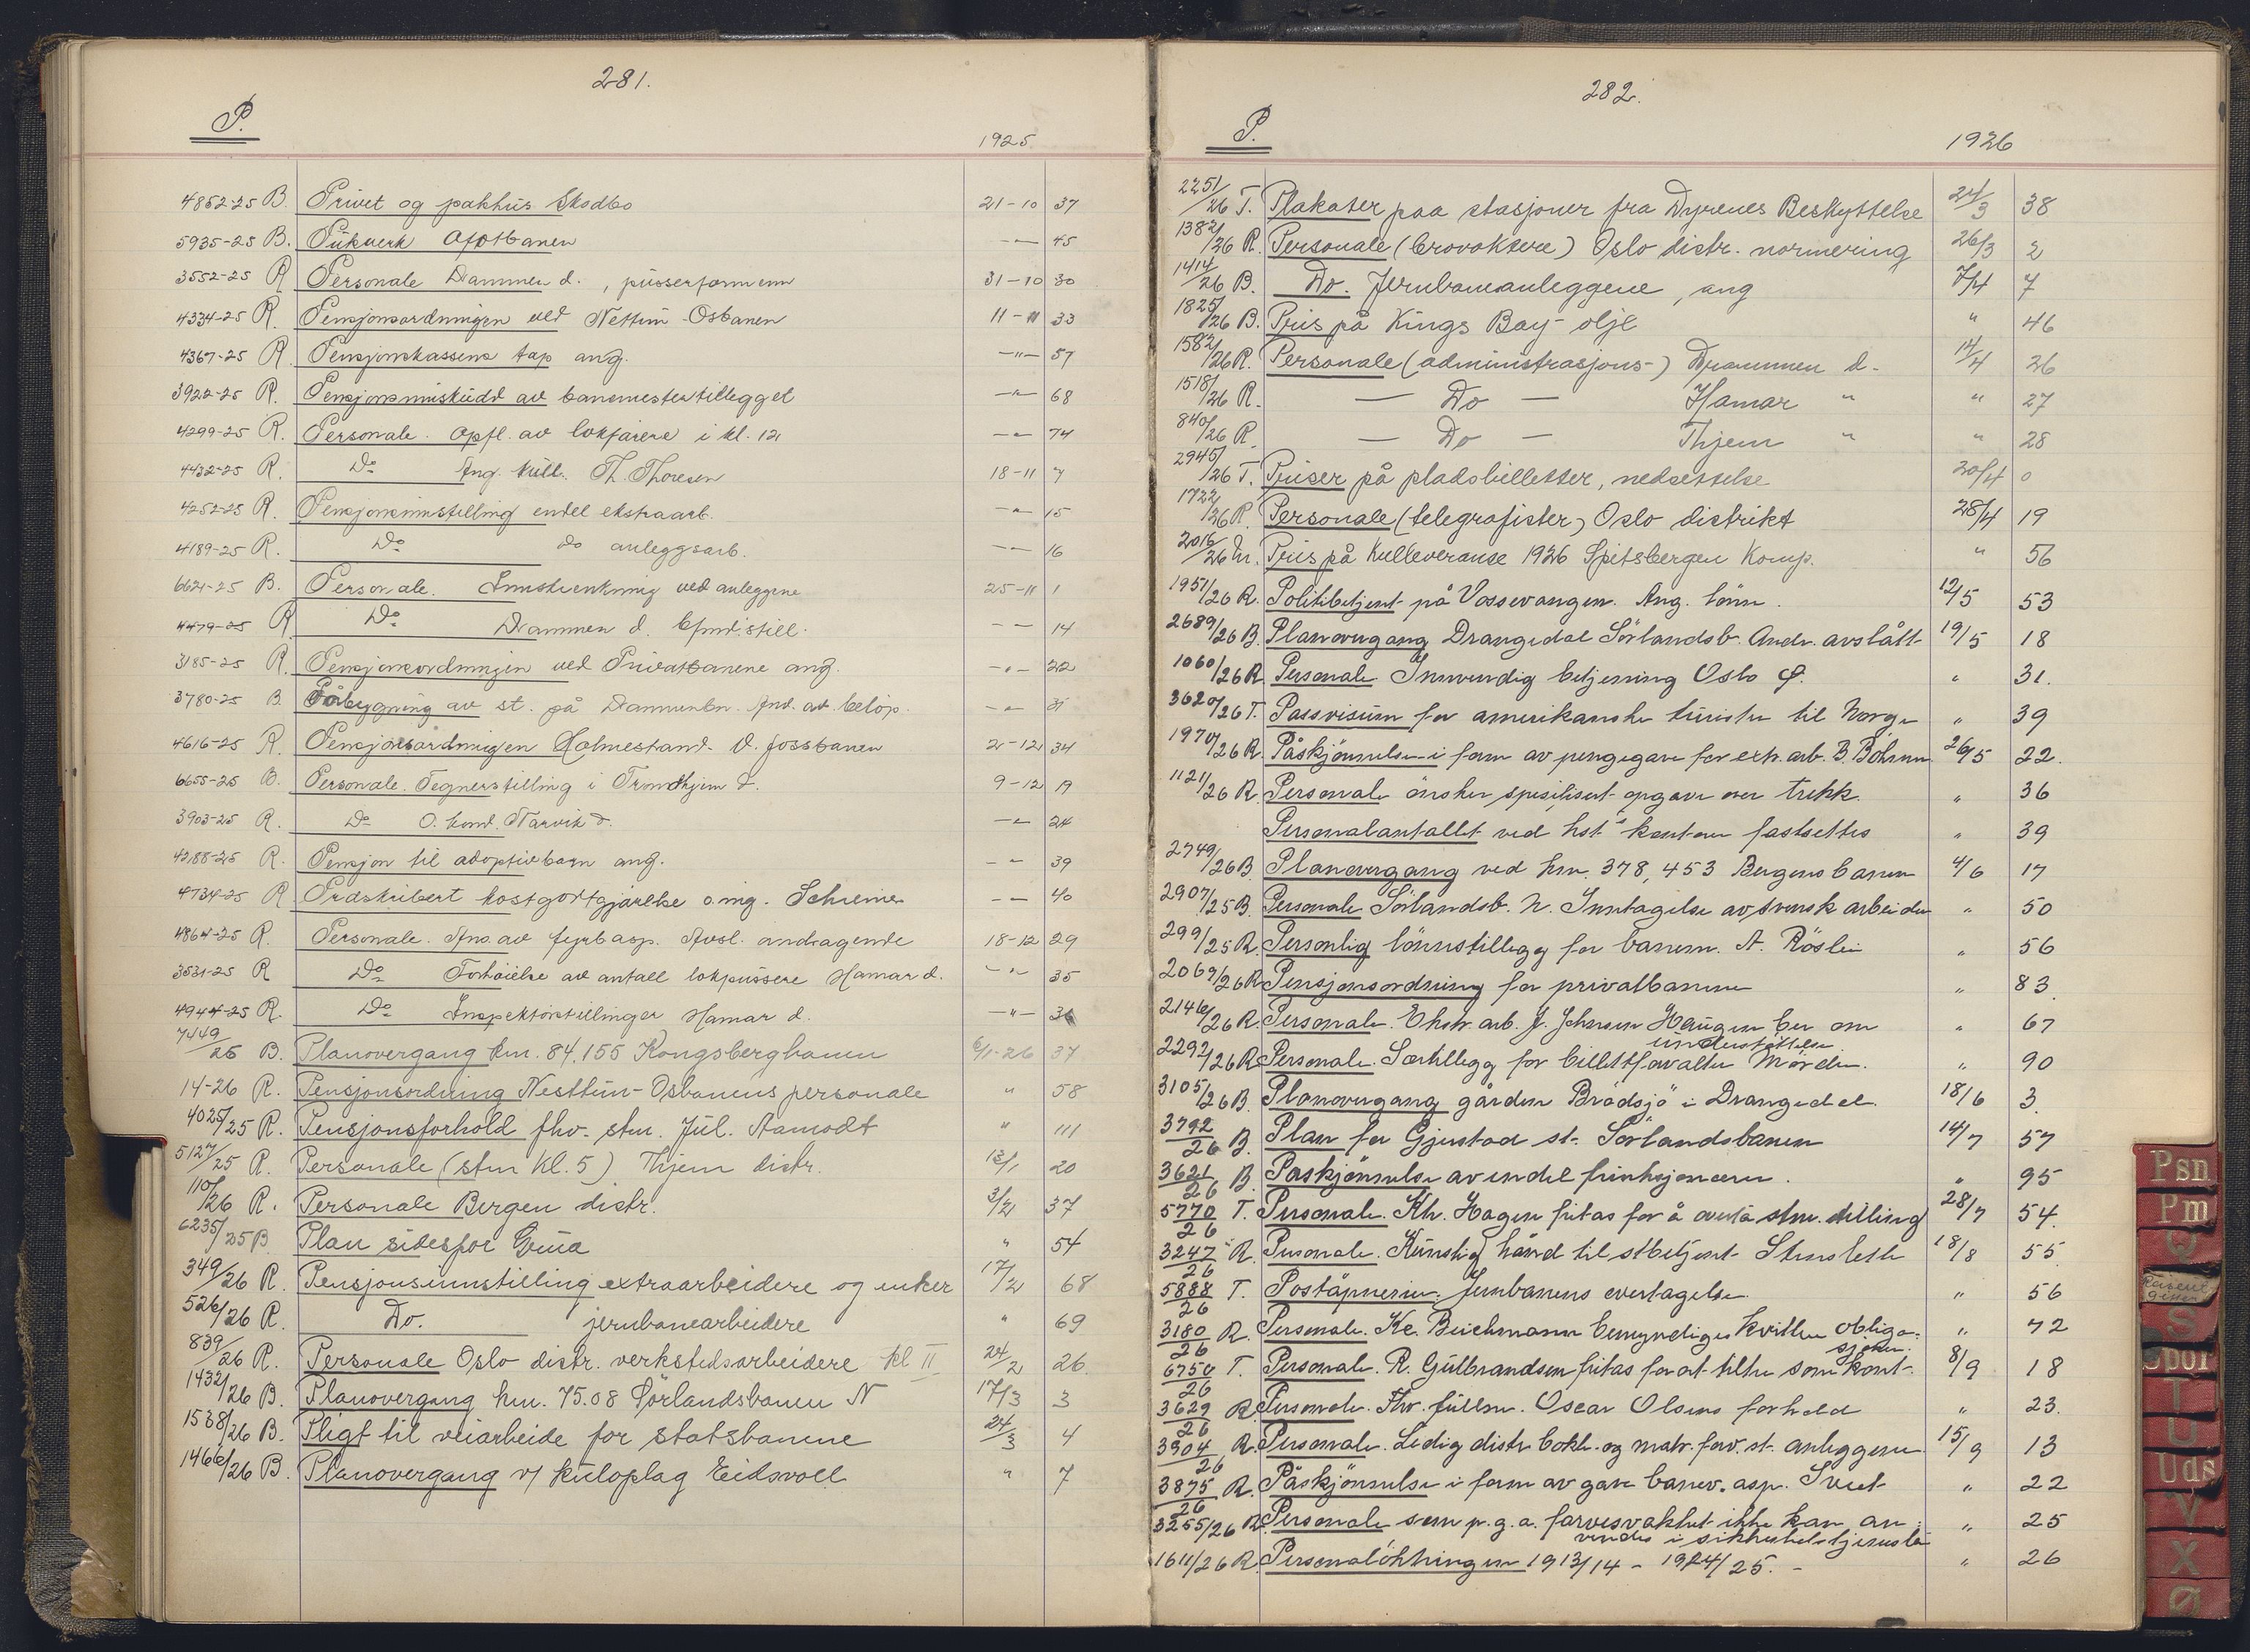 281.
P.
1925
4852-25 B. Privet og pakhus Skodbo 21-10 37
5935-25 B. Pukverk Ofotbanen -"- 45
3552-25 R Personale Drammen d., pusserformenn 31-10 30
4334-25 R. Pensjonsordningen ved Nettun-Osbanen 11-11 33
4367-25 R. Pensjonskassens tap ang. -"- 57
3922-25 R. Pensjonsinnskudd av banemestertillegget -"- 68
4299-25 R. Personale. Opfl. av lokførere i kl. 12 -"- 74
4432-25 R. Do Ang. Th. Thoresen 18-11 7
4252-25 R. Pensjonsinnstilling endel ekstraarb. -"- 15
4189-25 R. Do do anleggsarb. -"- 16
6621-25 B. Personale. Innskrenkning ved anleggene 25-11 1
4479-25 R Do Drammen d. still. -"- 14
3185-25 R. Pensjonsordningen ved Privatbanene ang. -"- 22
3780-25 B. Påbygning av st. på Drammenbn. And. av beløp. -"- 31
4616-25 R. Pensjonsordningen Holmestrand-V.fossbanen 2-12 34
6655-25 B. Personale. Tegnerstilling i Trondhjem d. 9-12 19
3903-25 R. Do O. kond. Narvik d. -"- 24
4288-25 R. Pensjon til adoptivbarn ang. -"- 39
4734-25 R Preskribert kostgodtgjørelse o.ing. Schreiner -"- 40
4864-25 R. Personale. Ans. av fyrb.asp. Avsl. andragende 18-12 29
3531-25 R Do Forhøielse av antall lokpussere Hamar d. -"- 35
4944-25 R. Do Inspektørstillinger Hamar d. -"- 36
7449/25 B. Planovergang km. 84,155 Kongsbergbanen 6/1-26 37
14-26 R. Pensjonsordning Nesttun-Osbanens personale " 58
4025/25 R. Pensjonsforhold fhv. stm. Jul. Aamodt " 111
5127/25 R. Personale (stm kl. 5) Thjem distr. 13/1 20
110/26 R. Personale Bergen distr. 3/2 37
6235/25 B Plan sidespor Grua " 54
349/26 R. Pensjonsinnstilling extraarbeidere og enker 17/2 68
526/26 R. Do. jernbanearbeidere " 69
839/26 R. Personale Oslo distr. verkstedsarbeidere kl II 24/2 26
1432/26 B. Planovergang km. 75.08 Sørlandsbanen N 17/3 3
1538/26 B. Pligt til veiarbeide for statsbanene 24/3 4
1466/26 B. Planovergang v/ kuloplag Eidsvoll " 7
282.
P.
1926
2251/26 T. Plakater paa stasjoner fra Dyrenes Beskyttelse 24/3 38
1382/26 R. Personale (brovoktere) Oslo distr. normering 26/3 2
1414/26 B. Do. Jernbaneanleggene, ang 7/4 7
1825/26 B. Pris på Kings Bay-olje " 46
1582/26 R. Personale (administrasjons-) Drammen d. 14/4 26
1518/26 R. — Do — Hamar " " 27
840/26 R. — Do — Thjem " " 28
2945/26 T. Priser på pladsbilletter, nedsettelse 20/4 0
1722/26 R. Personale (telegrafister) Oslo distrikt 28/4 19
2016/26 M. Pris på kulleveranse 1926 Spitsbergen Komp. " 56
1951/26 R. Politibetjent på Vossevangen. Ang. lønn. 12/5 53
2689/26 B. Planovergang Drangedal Sørlandsb. Andr. avslått 19/5 18
1060/26 R. Personale Innvendig betjening Oslo Ø. " 31.
3620/26 T. Passvisum for amerikanske turister til Norge " 39
1970/26 R. Påskjønnelse i form av pengegave for extr. arb. B. Bohmer 26/5 22.
1121/26 R. Personale ønsker spesilisert opgave over trekk. " 36
Personalantallet ved hst.s kontorer fastsettes " 39
2749/26 B. Planovergang ved km. 378,453 Bergensbanen 4/6 17
2907/25 B. Personale Sørlandsb. N. Inntagelse av svensk arbeider " 50
299/25 R. Personlig lønnstillegg for banem. A. Røslei " 56
2069/26 R Pensjonsordning for privatbanene " 83.
2146/26 R. Personale. Ekstr. arb. J. Johnsen Haugen ber om understøttelse " 67
2292/26 R. Personale. Særtillegg for billettforvalter Mörden. " 90
3105/26 B. Planovergang gården Brødsjø i Drangedal. 18/6 3.
3792/26 B. Plan for Gjerstad st. Sørlandsbanen 14/7 57
3621/26 B. Påskjønnelse av endel funksjonærer. " 95
5770/26 T. Personale. Kh. Hagen fritas for å overta stm. stilling 28/7 54.
3247/26 R. Personale. Kunstig hånd til stbetjent Stensleth 18/8 55
5888/26 T. Poståpneriene. Jernbanens overtagelse " 56
3180/26 R. Personale. Kc. Beichmann bemyndiges kvittere obligasjoner. " 72
6750/26 T. Personale. R. Gulbrandsen fritas for at tiltre som kont. 8/9 18
3629/26 R Personale. Fhv. fullm. Oscar Olsens forhold " 23.
3904/26 R. Personale. Ledig distr. bokh. og matr. forv. st. anleggene 15/9 13
3875/26 R. Påskjønnelse i form av gave banev. asp. Sveet " 22
3255/26 R. Personale som p.g.a. farvesvakhet ikke kan anvendes i sikkerhetstjeneste " 25
1611/26 R. Personaløkningen 1913/14 - 1924/25. - " 26
Psn
Pm
Q
S
Spor
T
U
Uds
V
X
Ø